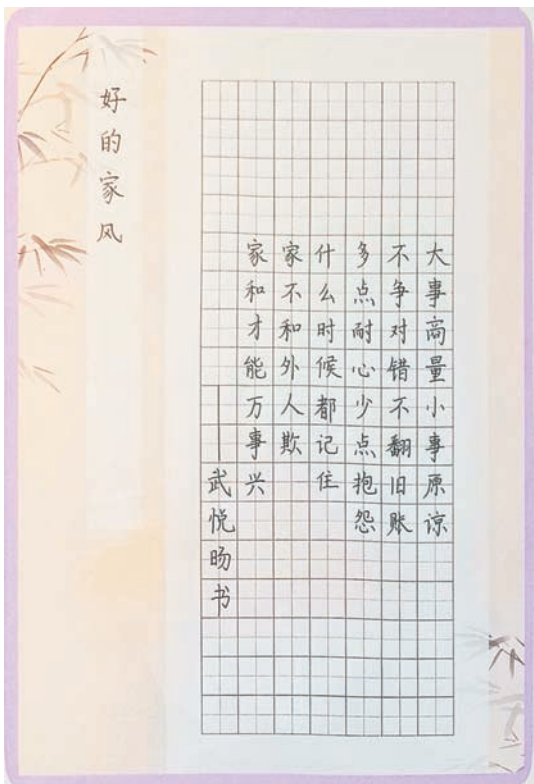 好的家风
大事商量小事原谅
不争对错不翻旧账
多点耐心少点抱怨
什么时候都记住
家不和外人欺
家和才能万事兴
——武悦旸书